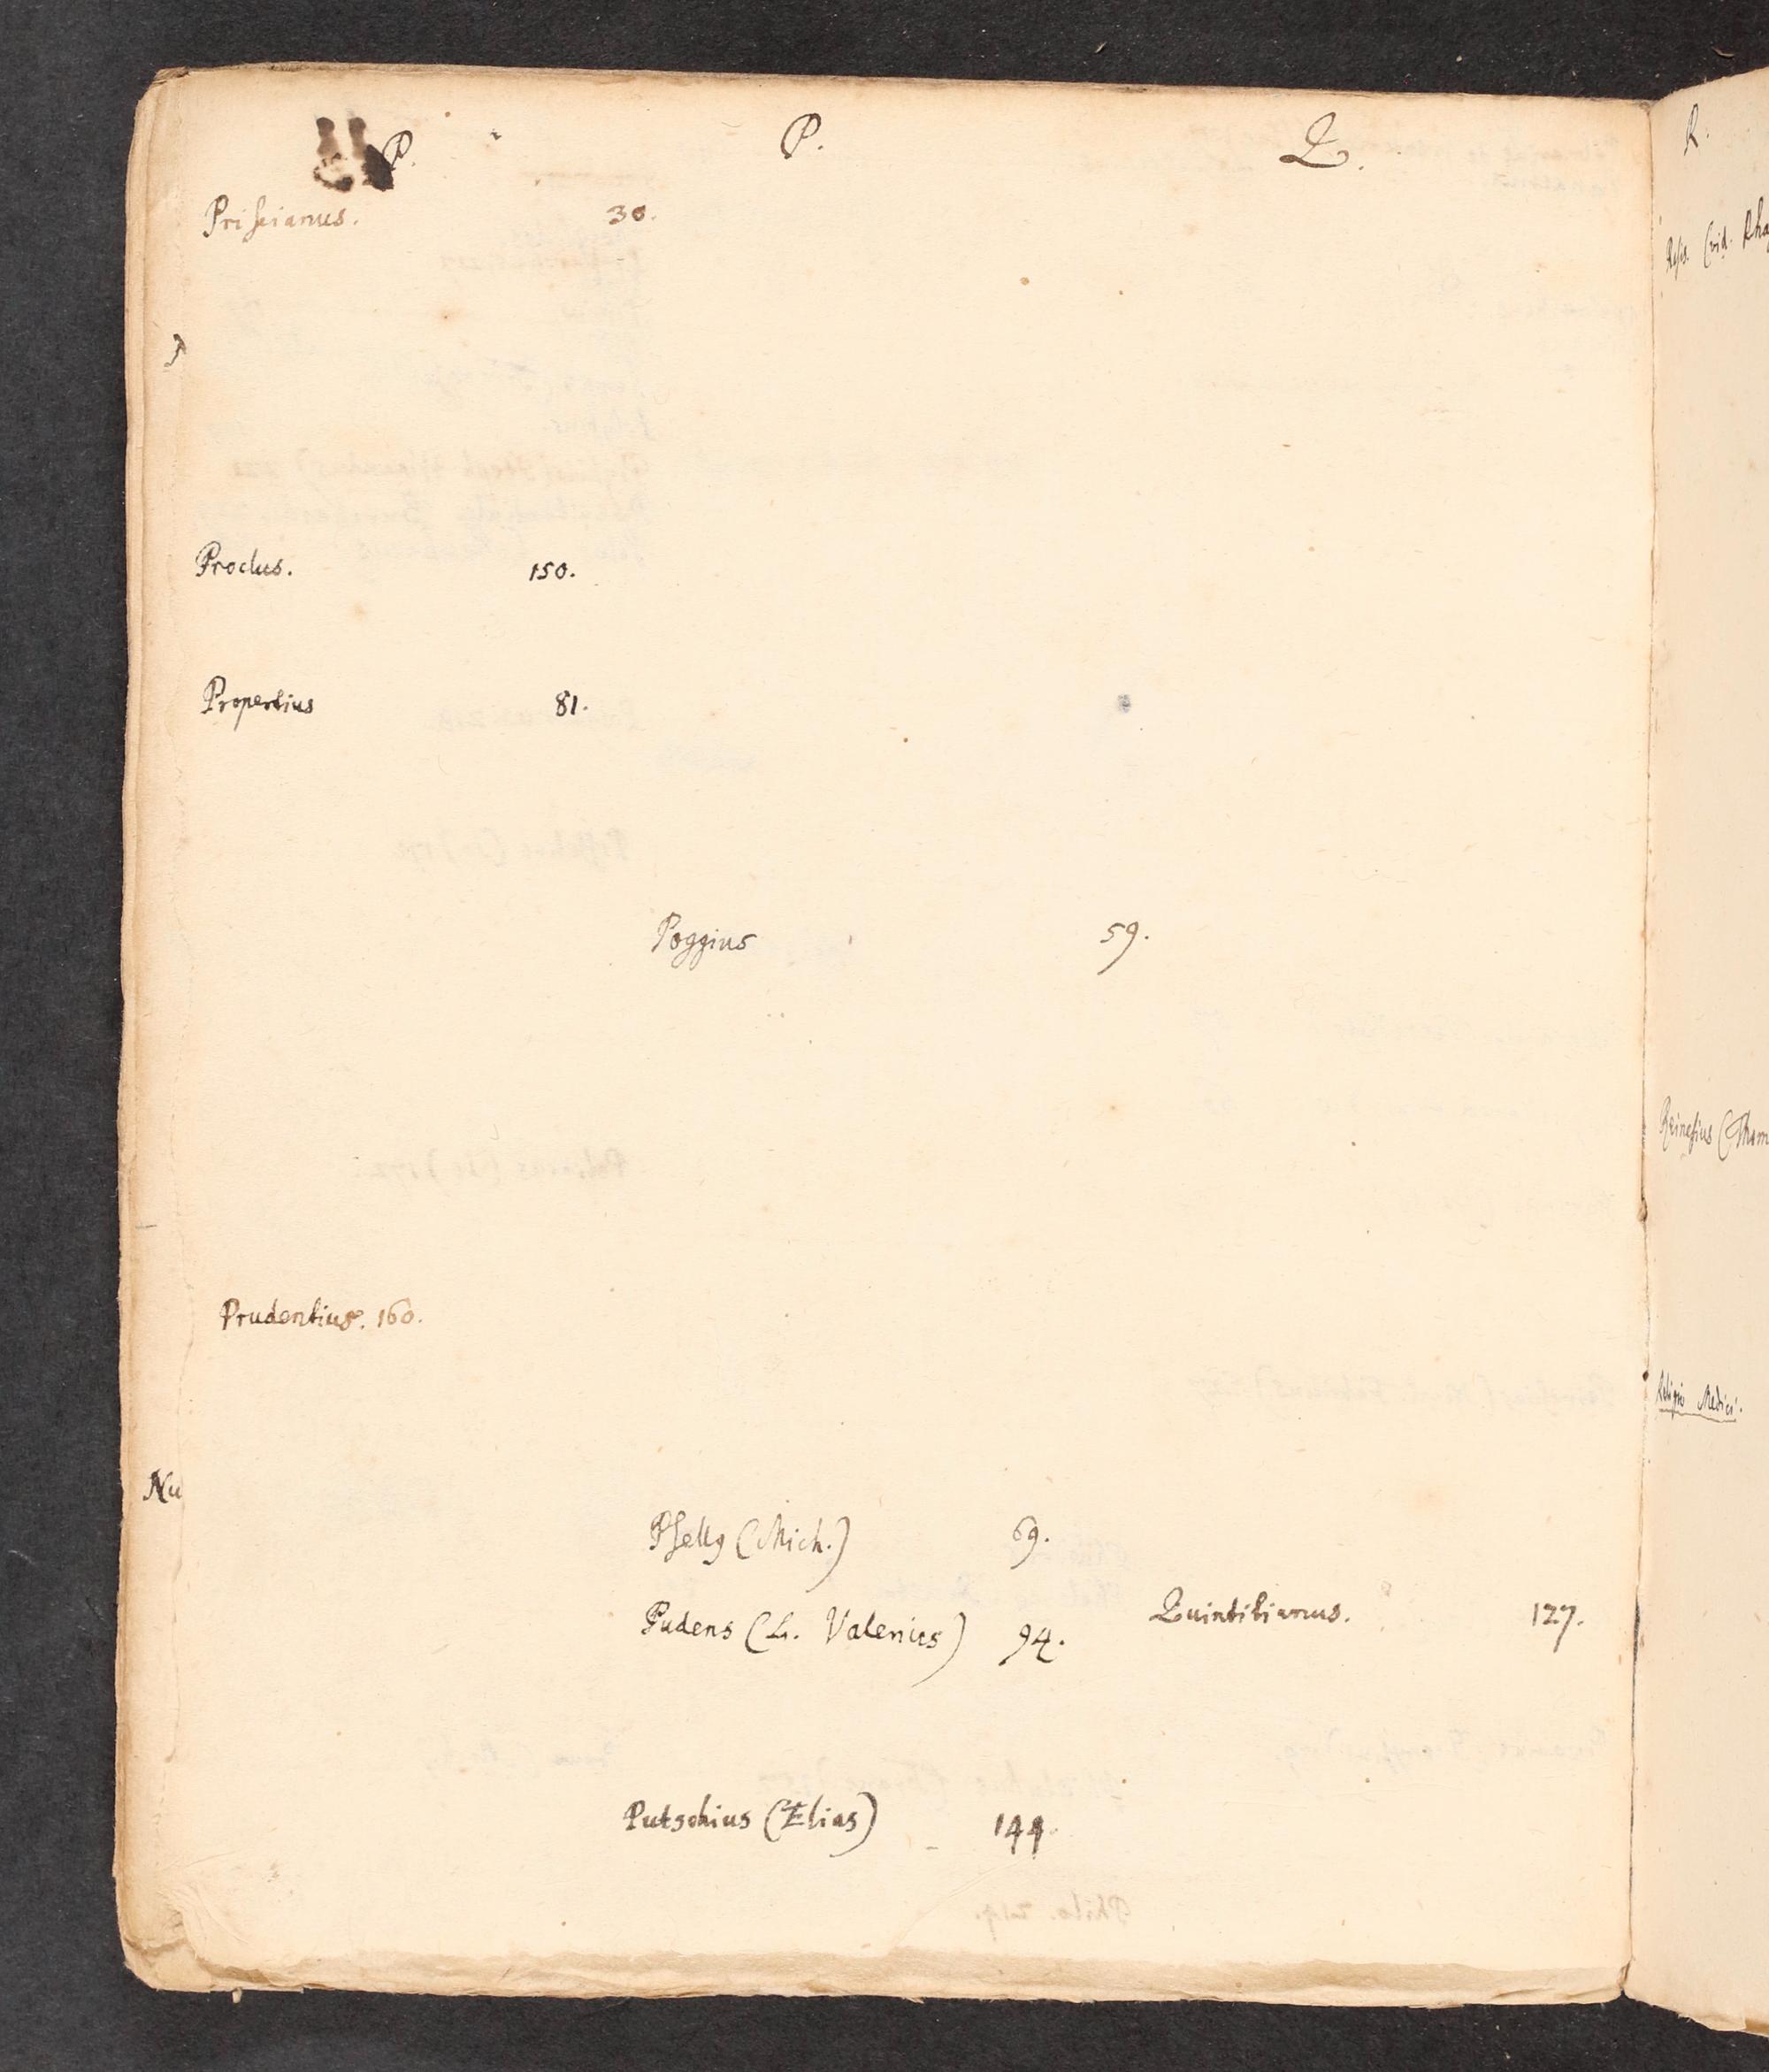 P.
Priscianus. 30.
Proclus. 150.
Propertius 81.
Prudentius. 160.
Nu
P.
Poggius 59.
Psellꝰ (Mich.) 69.
Pudens (L. Valerius) 94.
Putschius (Elias) 144.
Q.
Quintilianus. 127.
R.
(vid. Rha
Reinesius (Thom
Religio Medici.